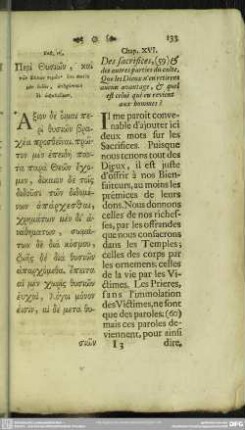 133
Κεφ. ις.
Περὶ Θυσιῶν, καὶ
Ἄξιον δὲ
ρὶ θυσιῶν βρα-
χέα προσθεῖναι. πρῶ-
τον μὲν ἐπειδὴ πάν-
τα παρὰ Θεῶν ἔχο-
μεν, δίκαιον δὲ τοῖς
διδοῦσι τῶν διδομέ-
νων ἀπάρχεσθαι,
χρημάτων μὲν δι' ἀ-
ναθημάτων, σωμά-
των δὲ διὰ κόσμου,
ζωῆς δὲ διὰ θυσιῶν
ἀπαρχόμεθα. ἔπειτα
αἱ μὲν χωρὶς θυσιῶν
εὐχαὶ, λόγοι μόνον
εἰσὶν, αἱ δὲ μετὰ θυ-
σιῶν
Chap. XVI.
Des sacrifices, (59) &
des autres parties du culte.
Que les Dieux n'en retirent
aucun avantage, & quel
est celui qui en revient
aux hommes?
Il me paroit conve-
nable d'ajouter ici
deux mots sur les
Sacrifices. Puisque
nous tenons tout des
Dieux, il est juste
d'offrir à nos Bien-
faiteurs, au moins les
prémices de leurs
dons. Nous donnons
celles de nos riches-
ses, par les offrandes
que nous consacrons
dans les Temples;
celles des corps par
les ornemens: celles
de la vie par les Vi-
ctimes. Les Prieres,
sans l'immolation
des Victimes, ne sont
que des paroles: (60)
mais ces paroles de-
viennent, pour ainsi
I 3 dire,